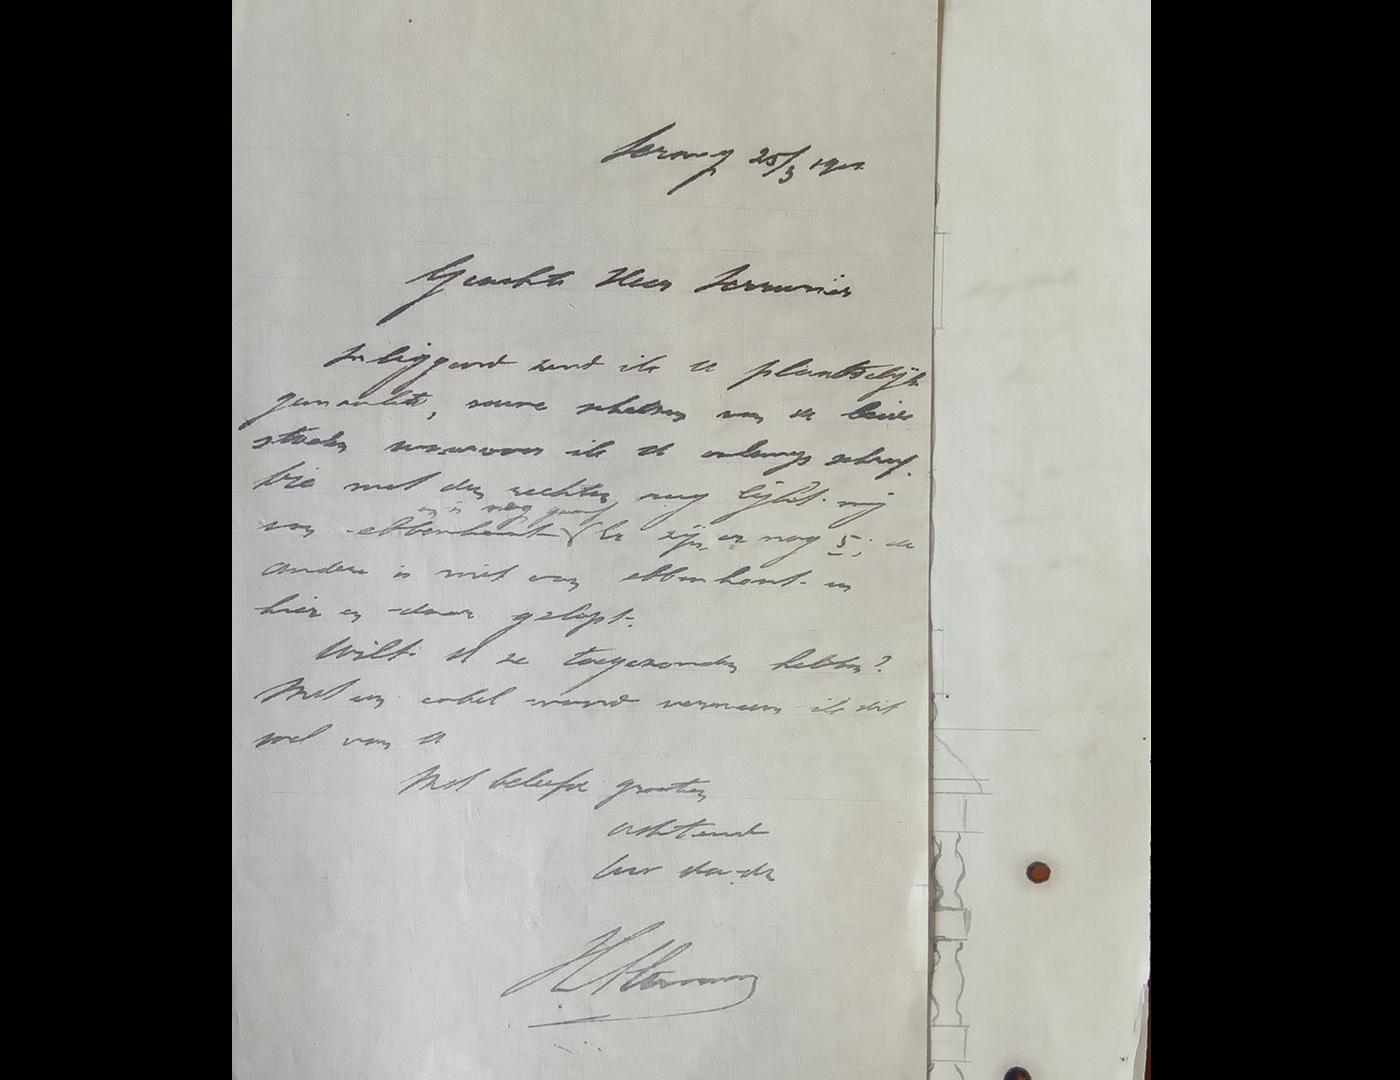 Serang 25/3 19
Geachte Heer Serrurier
Inliggend zend ik U plaatselijk
gemaakte, ruwe schetsen van de beide
stoelen waarover ik U onlangs schreef.
Die met den rechten rug lijkt mij
en is nog gaaf
van ebbenhout (Er zijn er nog 5; de
andere is niet van ebbenhout en
hier en daar gelapt.
Wilt U ze toegezonden hebben?
Met een enkel woord verneem ik dit
wel van U
Met beleefde groeten
achtend
Uw dw dr